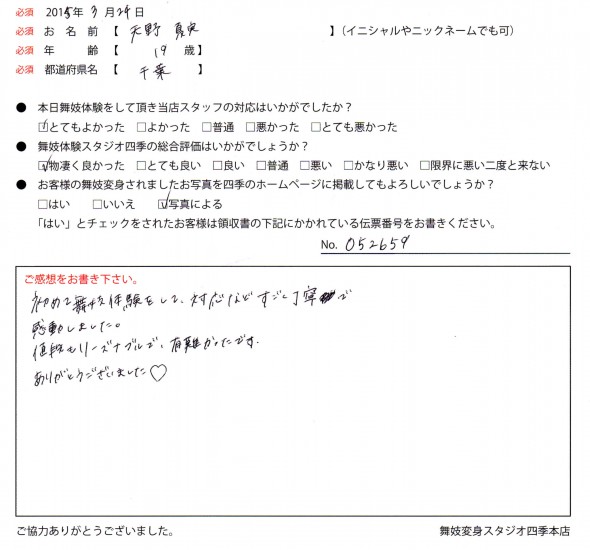 必須 2015年 3月 29日
必須 お名前 【 天野 真実 】（イニシャルやニックネームでも可）
必須 年齢 【 19 歳】
必須 都道府県名 【 千葉 】
● 本日舞妓体験をして頂き当店スタッフの対応はいかがでしたか？
☑とてもよかった □よかった □普通 □悪かった □とても悪かった
● 舞妓体験スタジオ四季の総合評価はいかがでしょうか？
☑物凄く良かった □とても良い □良い □普通 □悪い □かなり悪い □限界に悪い二度と来ない
● お客様の舞妓変身されましたお写真を四季のホームページに掲載してもよろしいでしょうか？
□はい □いいえ ☑写真による
「はい」とチェックをされたお客様は領収書の下記にかかれている伝票番号をお書きください。
No. 052659
ご感想をお書き下さい。
初めて舞妓体験をして、対応などすごく丁寧で
感動しました。
値段もリーズナブルで、有難かったです。
ありがとうございました♡
ご協力ありがとうございました。
舞妓変身スタジオ四季本店